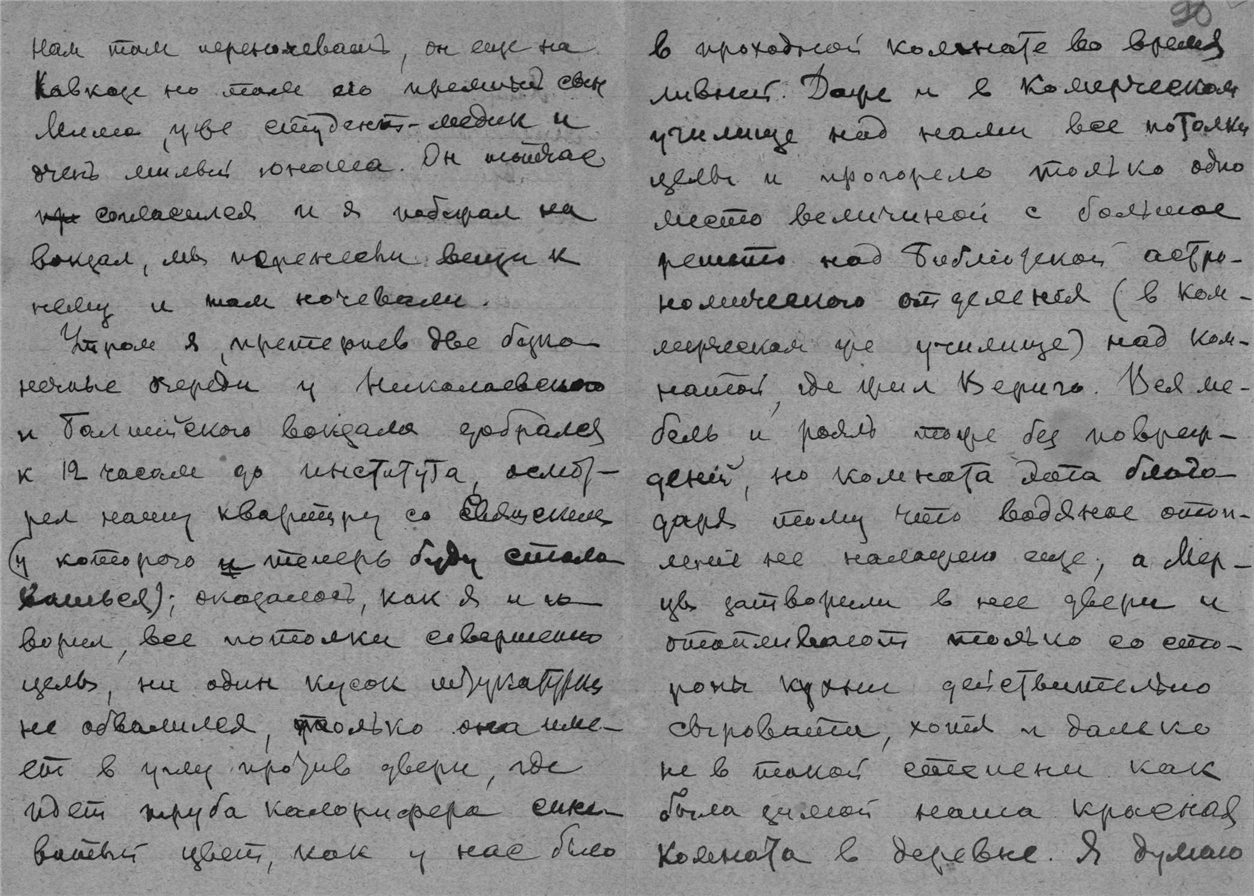 нам там переночевать, он еще на
Кавказе но там его приемный сын
Миша, уже студент-медик и
очень милый юноша. Он тотчас
согласился и я побежал на
вокзал, мы перенесли вещи к
нему и там ночевали.
Утром я, претерпев две безко-
нечные очереди у Николаевского
и Балтийского вокзала добрался
к 12 часам до института, осмот-
рел нашу квартиру со Святским
(у которого и теперь буду столо-
ваться); оказалось, как я и го-
ворил, все потолки совершенно
целы, ни один кусок штукатурки
не обвалился, только она име-
ет в углу против двери, где
идет труба калорифера сине-
ватый цвет, как у нас было
в проходной комнате во время
ливней. Даже и в Комерческом
училище над нами все потолки
целы и прогорело только одно
место величиной с большое
решето над Библиотекой астро-
номического отделения (в Ком-
мерческом же училище) над ком-
натой, где жил Вериго. Вся ме-
бель и рояль тоже без повреж-
дений, но комната эта благо-
даря тому что водяное отоп-
ление не налажено еще, а Мер-
цы затворили в нее двери и
отапливают только со сто-
роны кухни действительно
сыровата, хотя и далеко
не в такой степени как
была зимой наша красная
комната в деревне. Я думаю